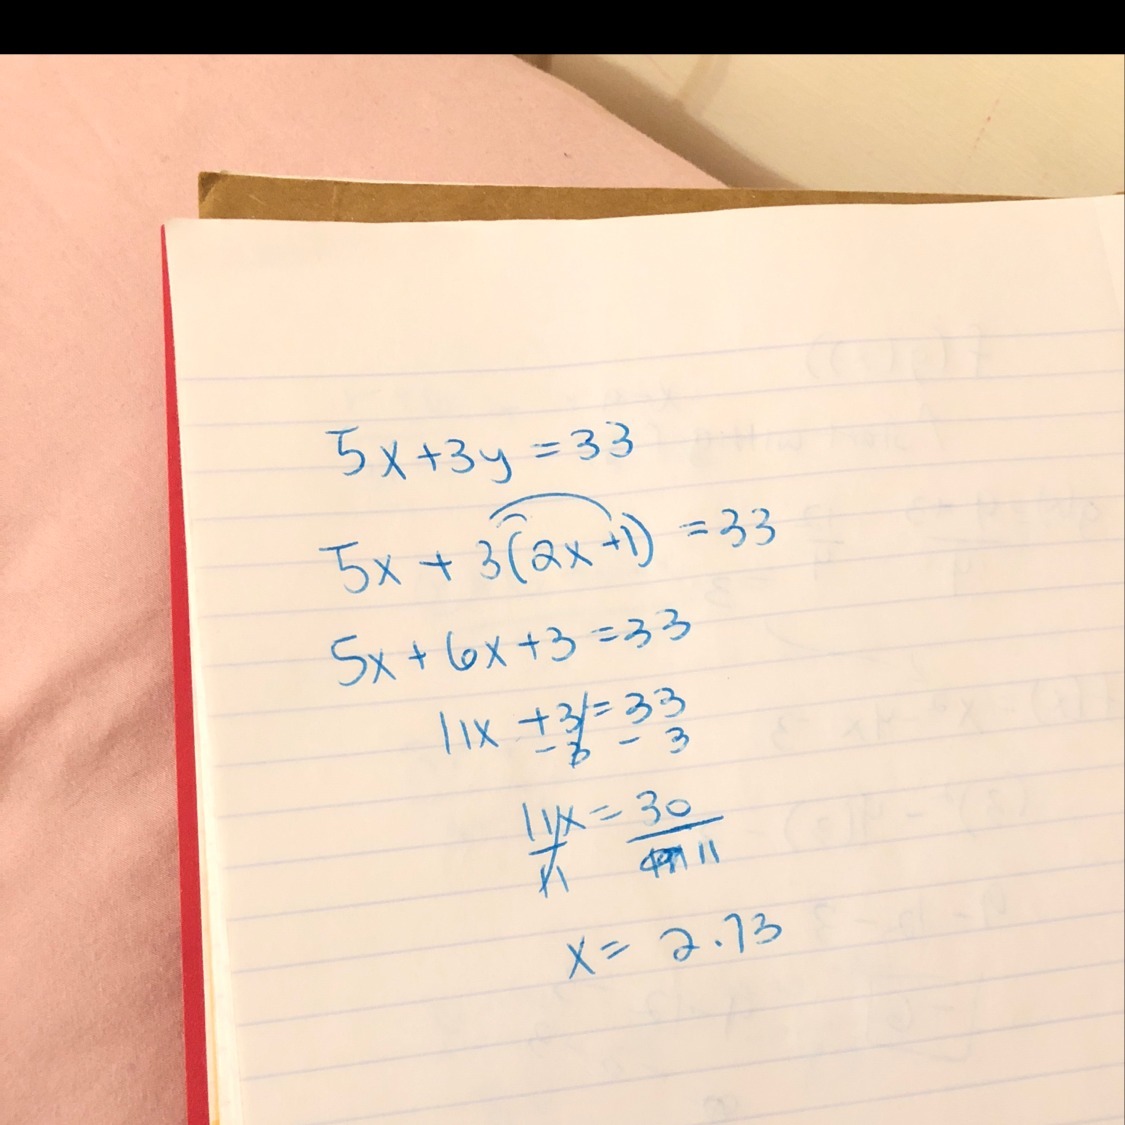 5x+3y=33
5x + 3(2x+1) = 33
5x + 6x + 3 = 33
11x +3 = 33
-3 - 3
11x = 30
11 11
x = 2.73